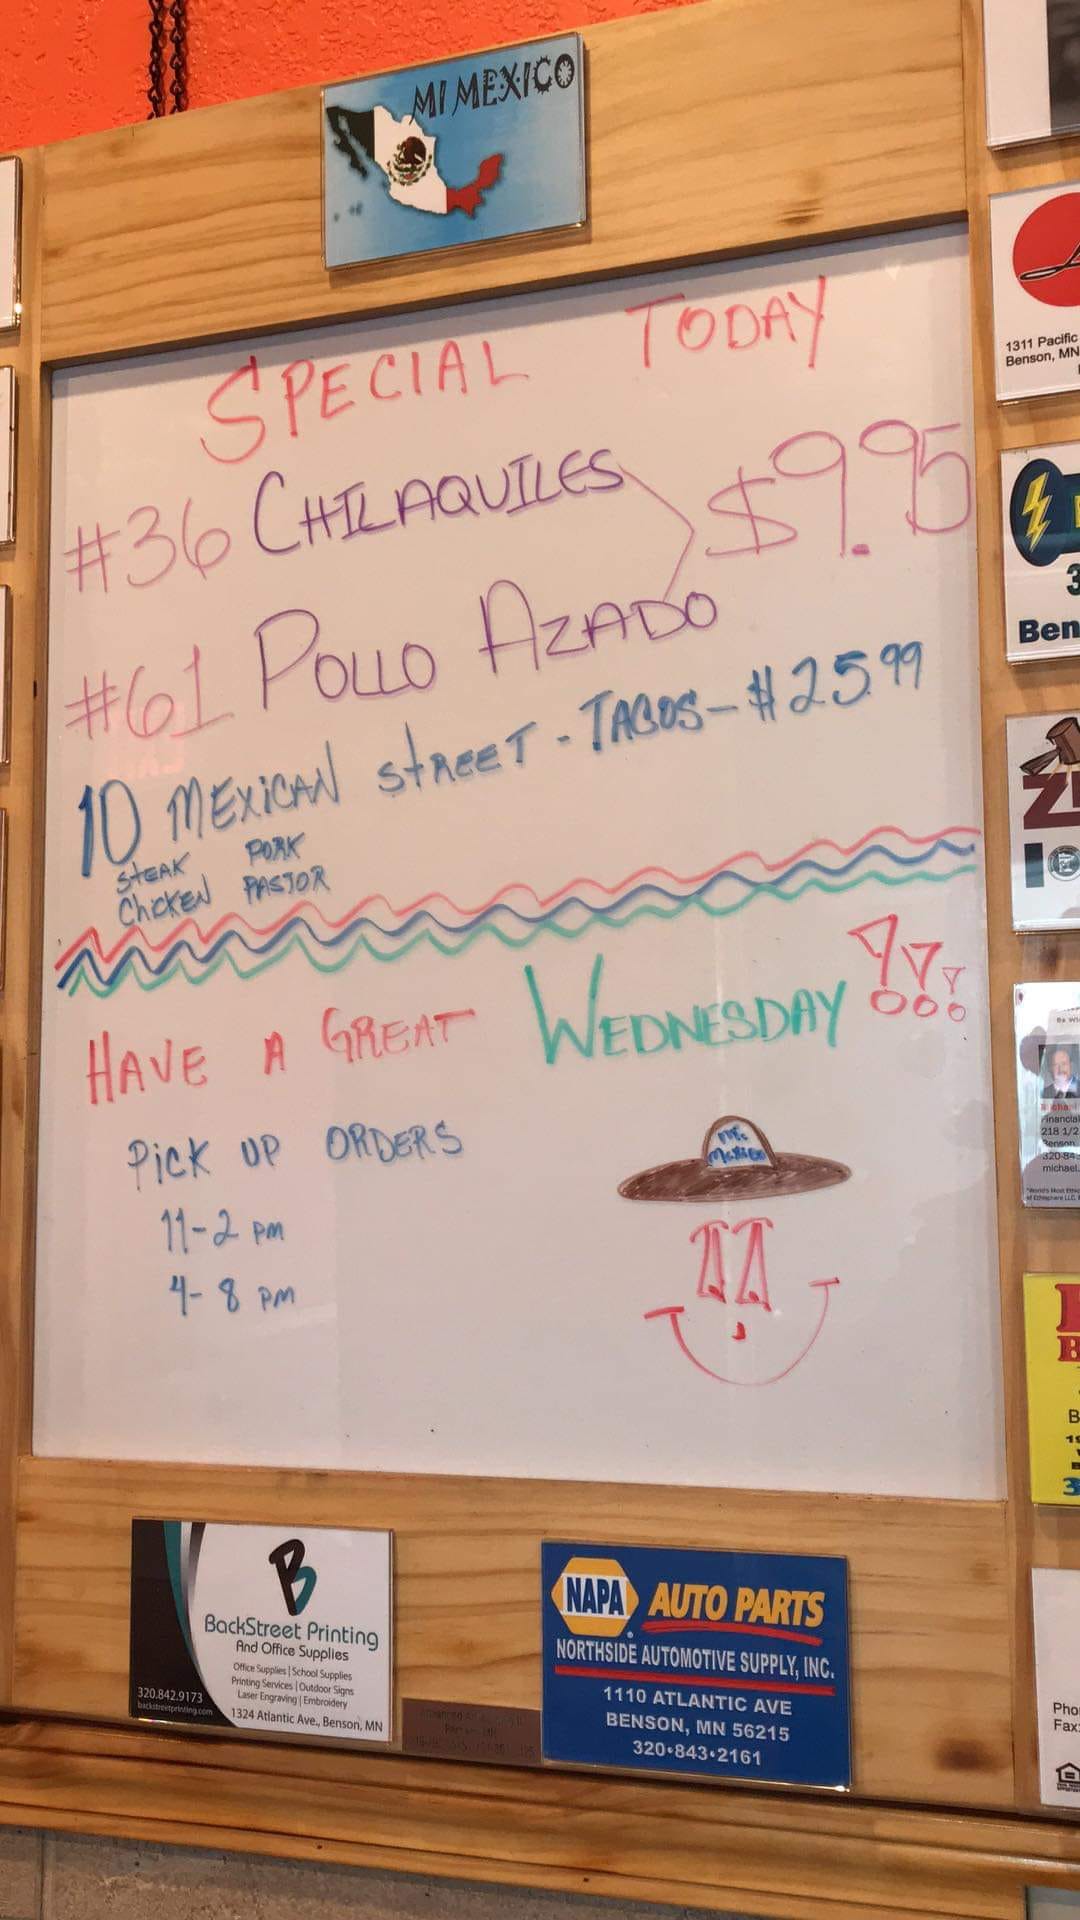 MI MEXICO
SPECIAL TODAY
#36 CHILAQUILES
$9.95
#61 POLLO AZADO
10 MEXICAN STREET - TACOS - $25.99
STEAK PORK
CHICKEN PASTOR
HAVE A GREAT WEDNESDAY !!!
PICK UP ORDERS
11-2 PM
4-8 PM
B
BackStreet Printing
And Office Supplies
Office Supplies | School Supplies
Printing Services | Outdoor Signs
Laser Engraving | Embroidery
320.842.9173
backstreetprinting.com
1324 Atlantic Ave., Benson, MN
NAPA AUTO PARTS
NORTHSIDE AUTOMOTIVE SUPPLY, INC.
1110 ATLANTIC AVE
BENSON, MN 56215
320•843•2161
1311 Pacific
Benson, MN
3
Ben
218 1/2
Benson
michael.
Fax: